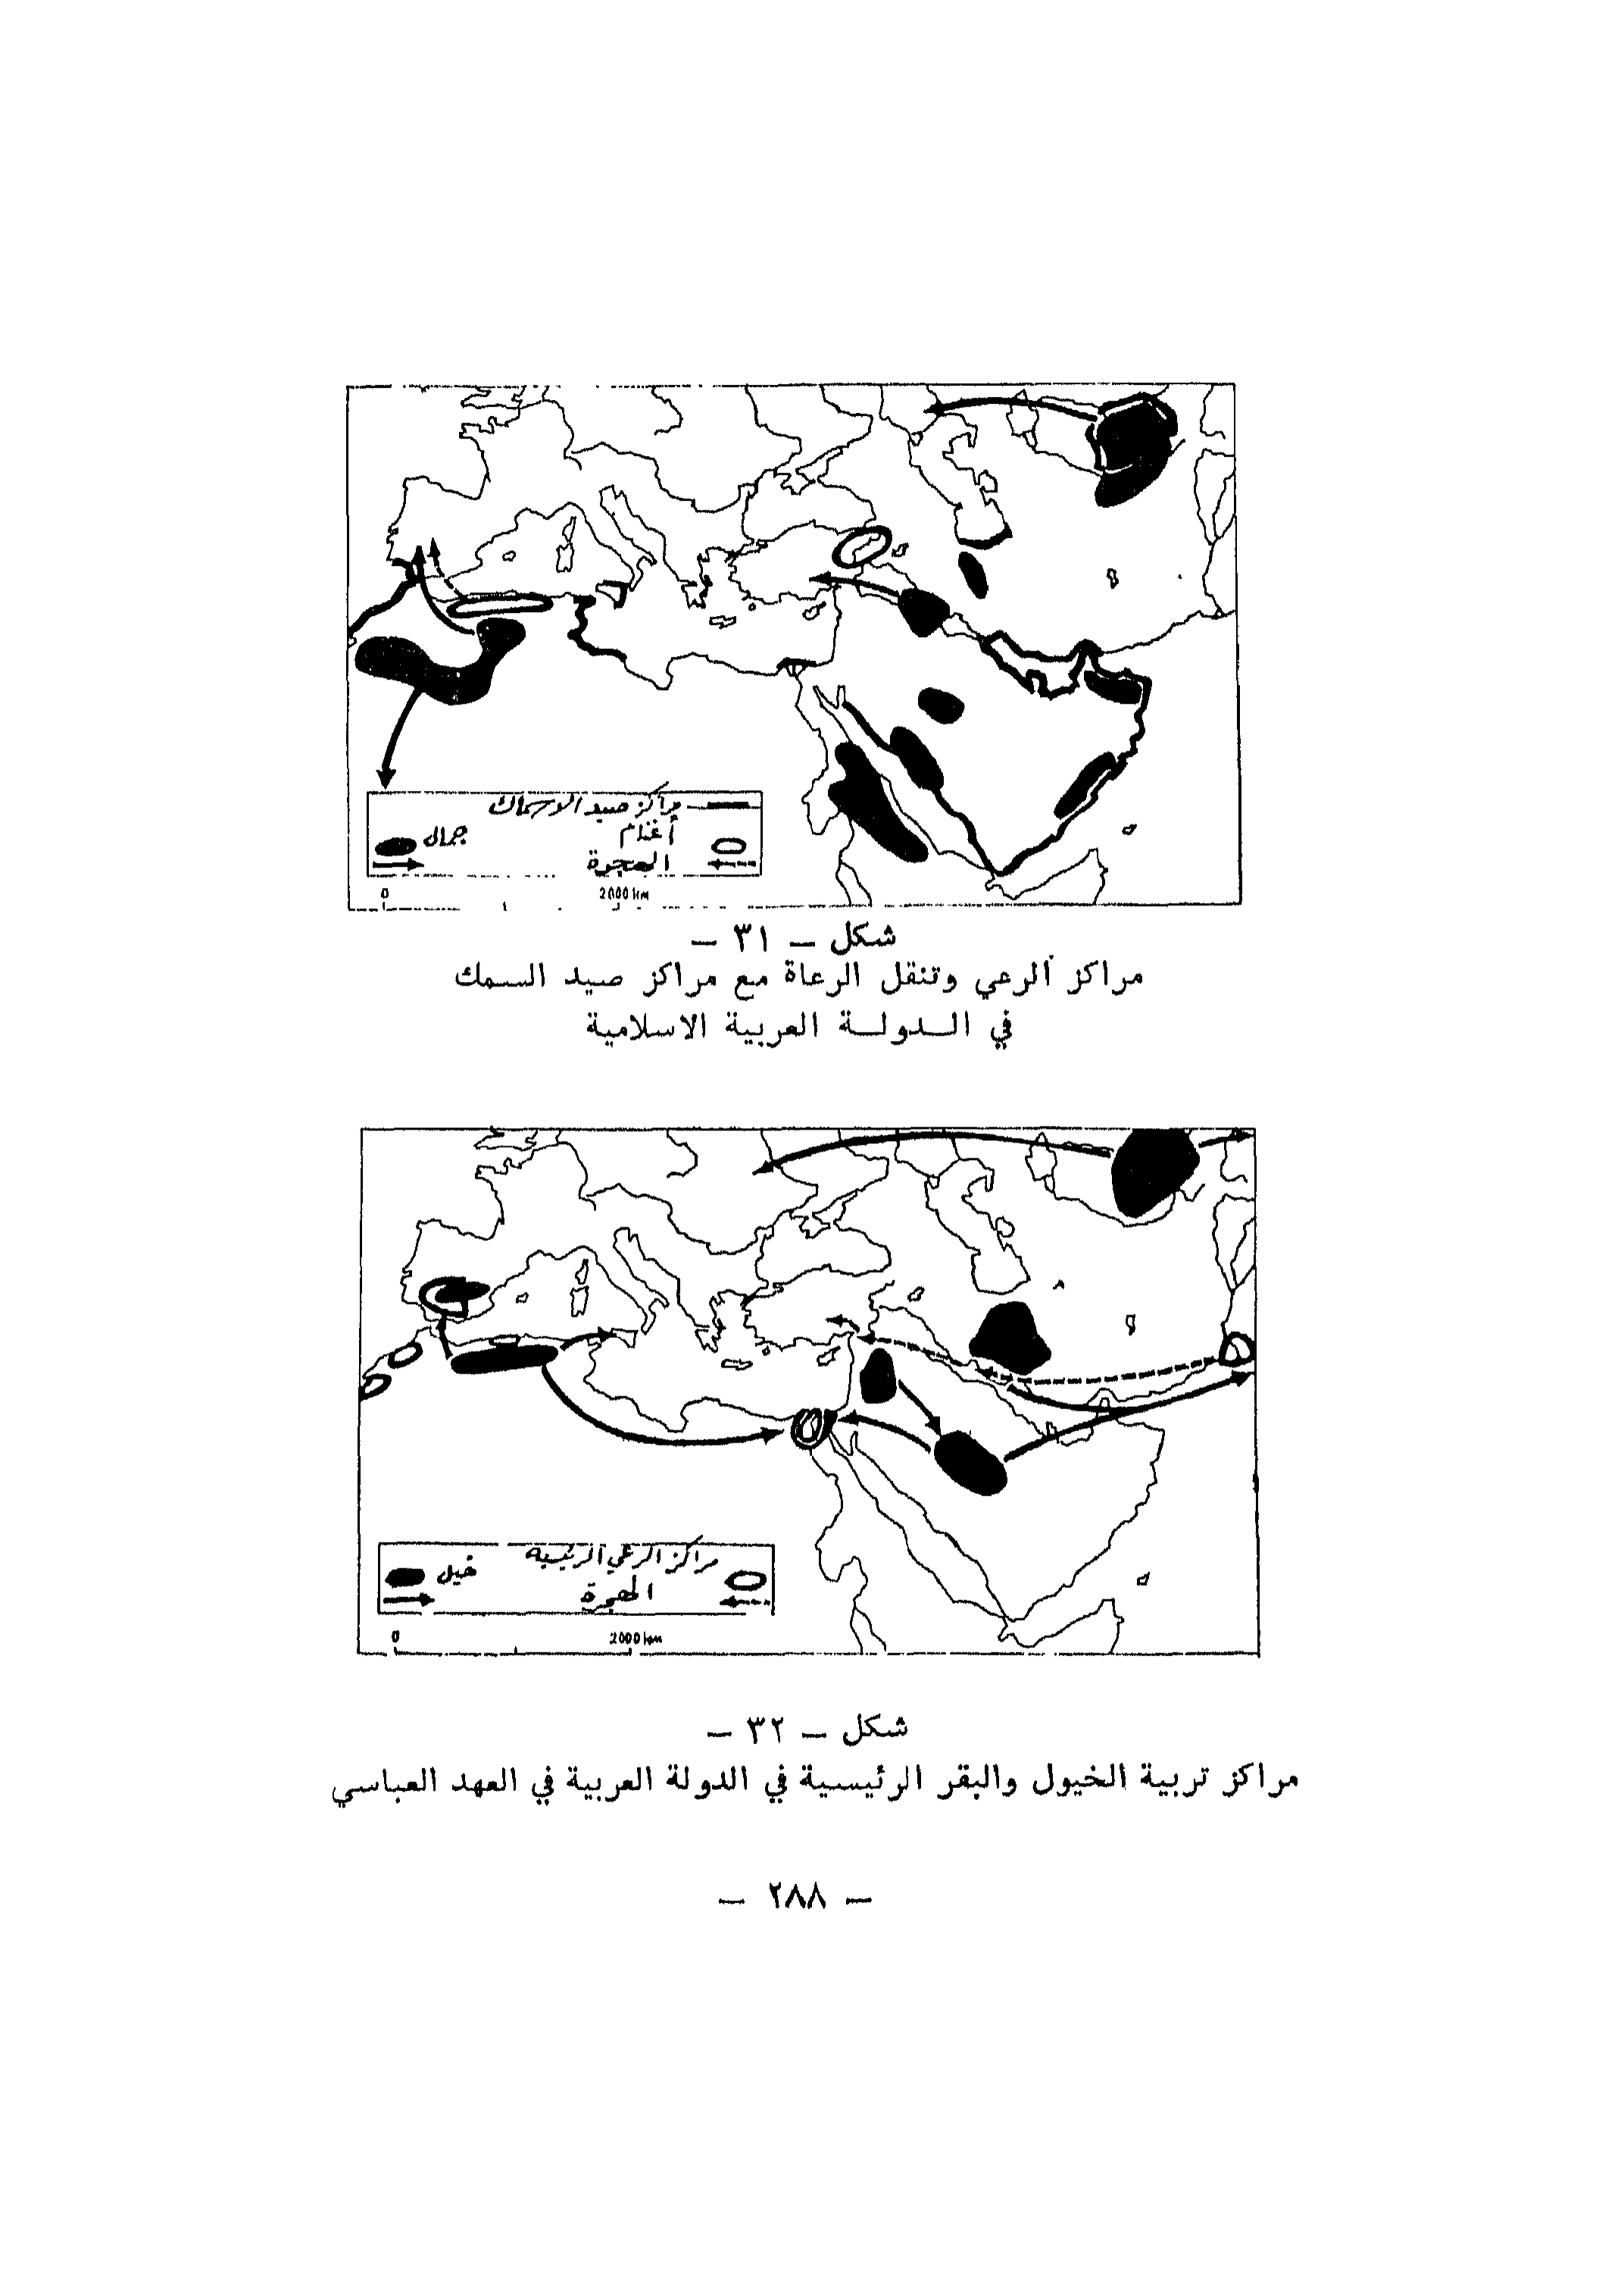 مراكز صيد الاسماك
أغنام
جمال
الهجرة
0 2000 km
شكل – ٣١ –
مراكز الرعي وتنقل الرعاة مع مراكز صيد السمك
في الـدولـة العربية الاسلامية
مراكز الرعي الرئيسية
خيل
الهجرة
0 2000 km
شكل – ٣٢ –
مراكز تربية الخيول والبقر الرئيسية في الدولة العربية في العهد العباسي
– ٢٨٨ –